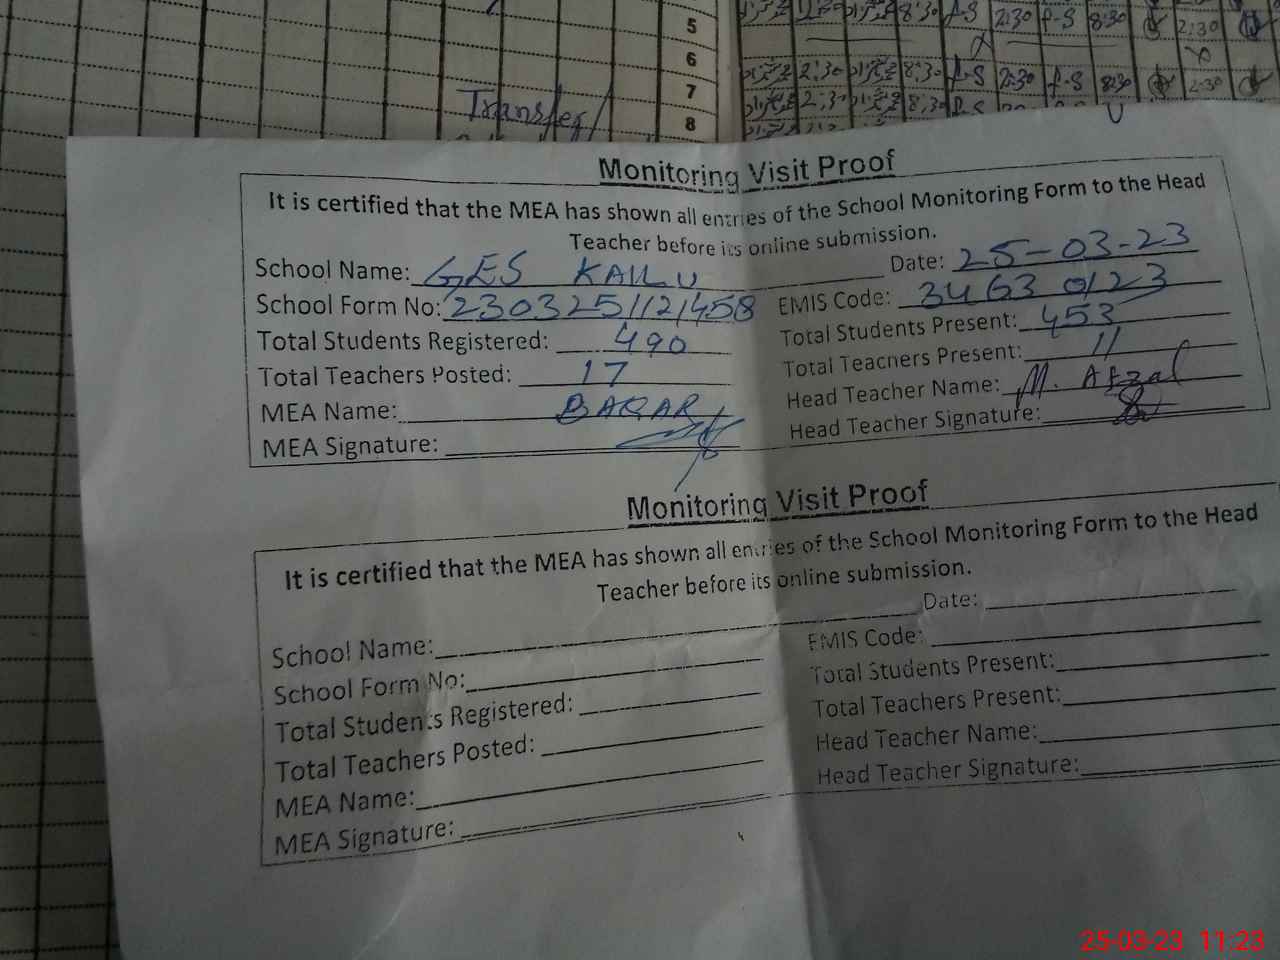 5
6
7
8
Transfer
2:30 8:30 P-S 2:30 P-S 8:30 2:30
2:30 8:30 P-S 2:30 P-S 8:30 2:30
2:30 8:30 P-S
Monitoring Visit Proof
It is certified that the MEA has shown all entries of the School Monitoring Form to the Head
Teacher before its online submission.
School Name: GES KAILU Date: 25-03-23
School Form No: 2303251121458 EMIS Code: 34630123
Total Students Registered: 490 Total Students Present: 453
Total Teachers Posted: 17 Total Teachers Present: 11
MEA Name: BAQAR Head Teacher Name: M. Afzal
MEA Signature: Head Teacher Signature:
Monitoring Visit Proof
It is certified that the MEA has shown all entries of the School Monitoring Form to the Head
Teacher before its online submission.
School Name: Date:
School Form No: EMIS Code:
Total Students Registered: Total Students Present:
Total Teachers Posted: Total Teachers Present:
MEA Name: Head Teacher Name:
MEA Signature: Head Teacher Signature:
25-03-23 11:23